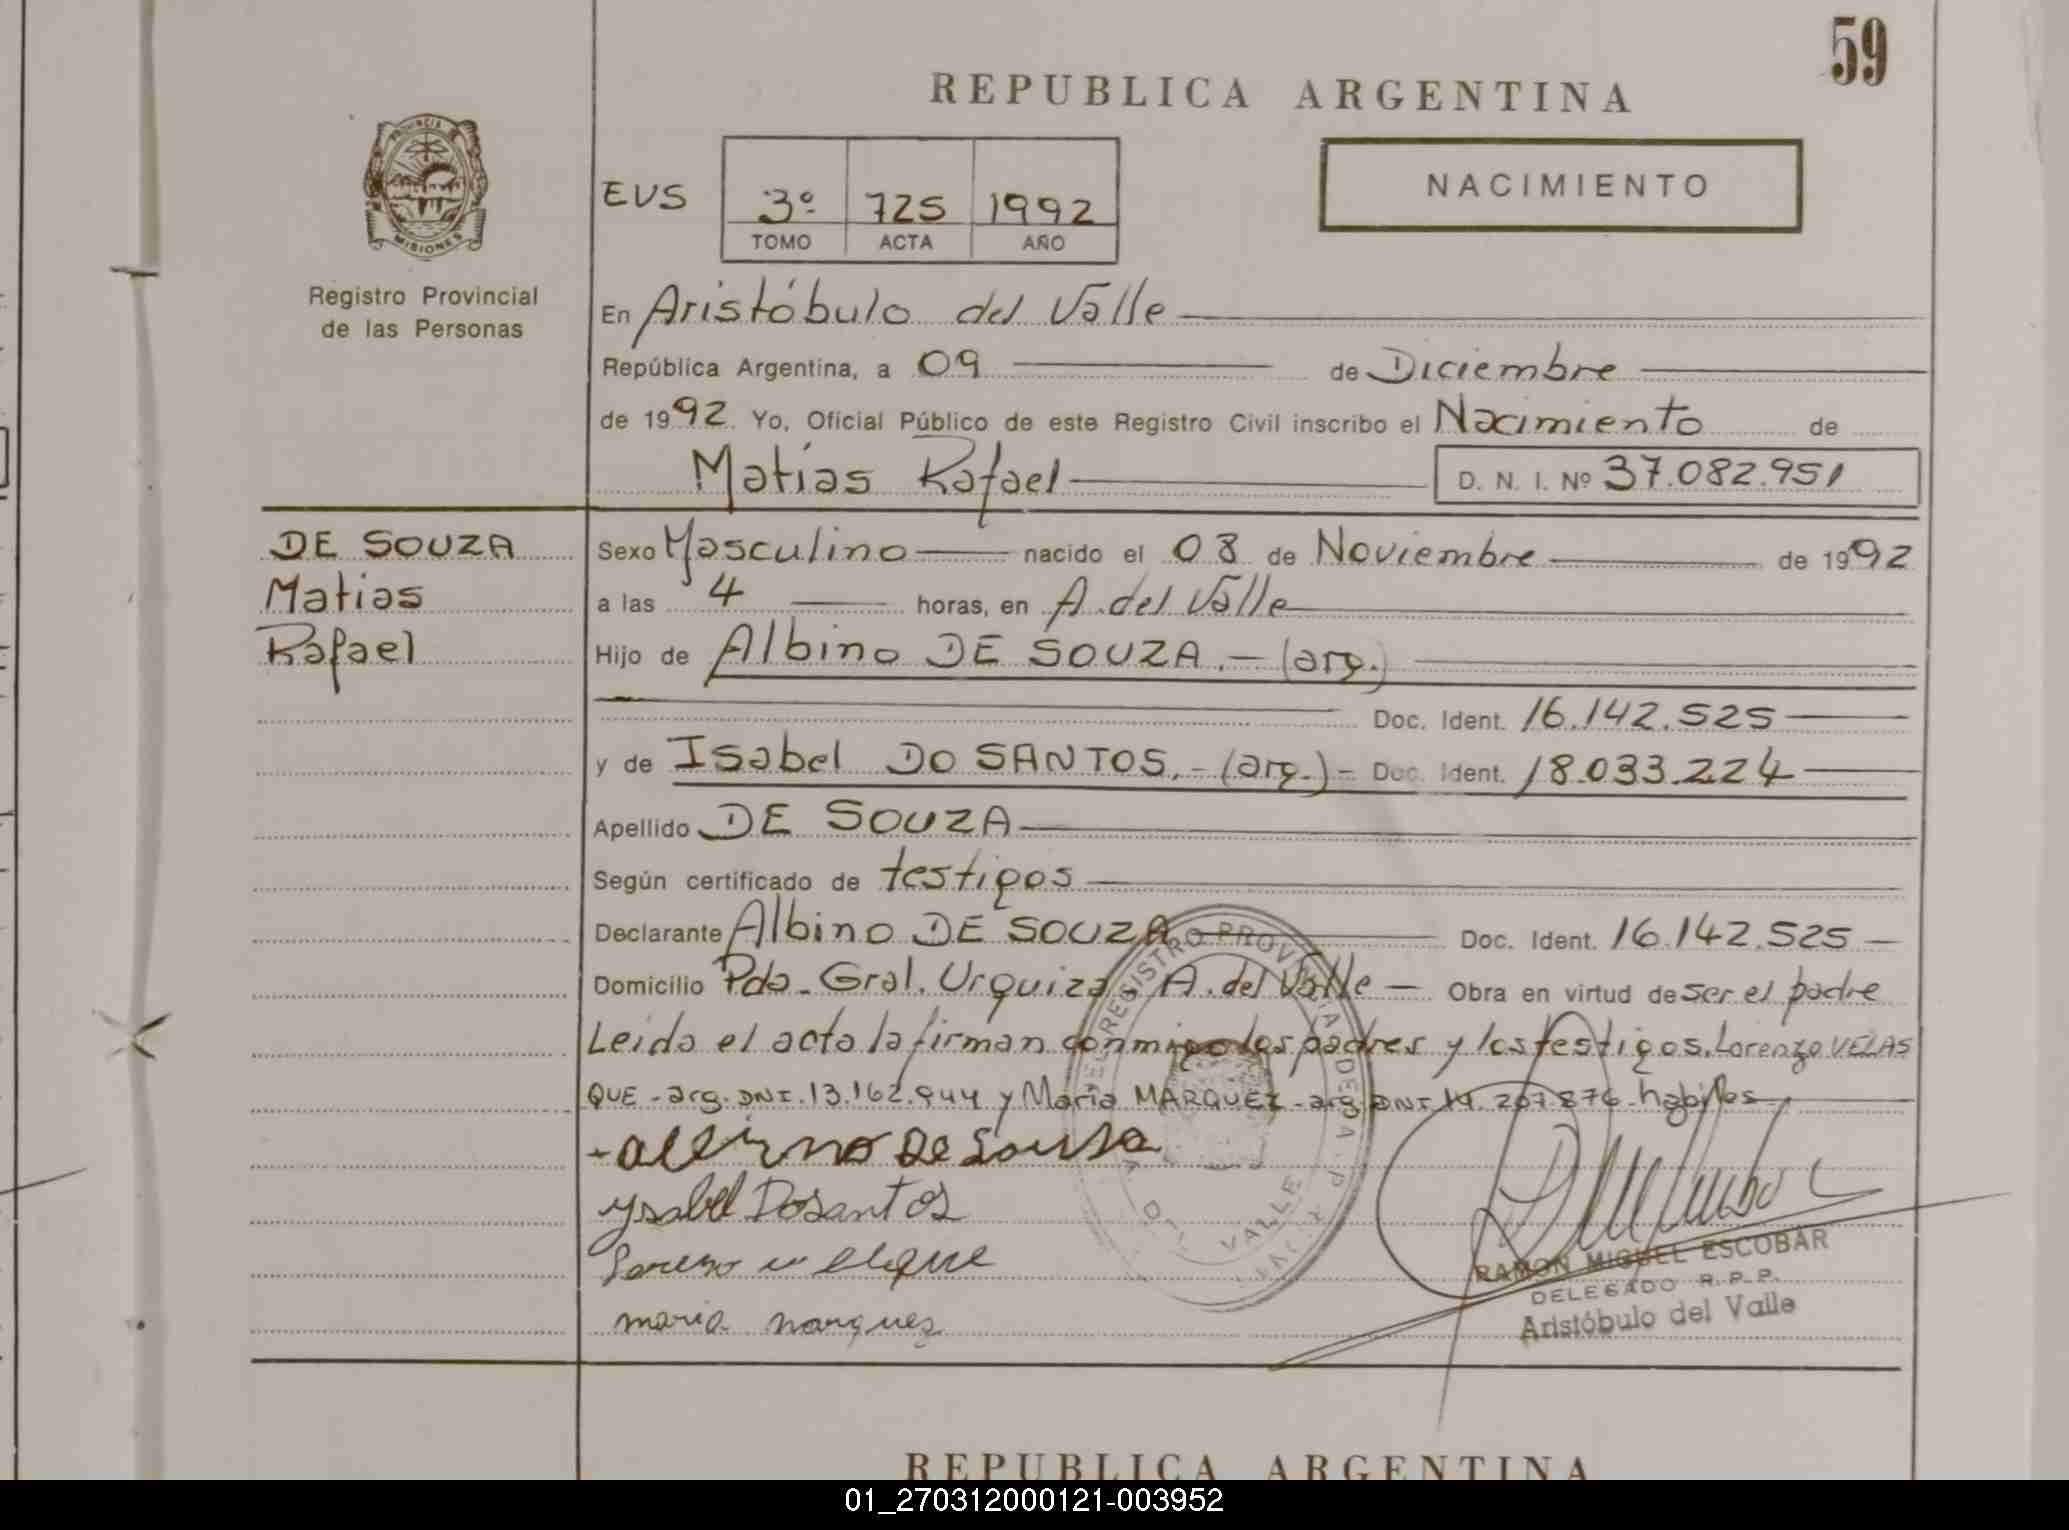 59
REPUBLICA ARGENTINA
PROVINCIA DE
MISIONES
Registro Provincial
de las Personas
EVS
3º 725 1992
TOMO ACTA AÑO
NACIMIENTO
En Aristóbulo del Valle
República Argentina, a 09 de Diciembre
de 1992 Yo, Oficial Público de este Registro Civil inscribo el Nacimiento de
Matías Rafael D. N. I. Nº 37.082.951
DE SOUZA
Matias
Rafael
Sexo Masculino nacido el 08 de Noviembre de 1992
a las 4 horas, en A. del Valle
Hijo de Albino DE SOUZA.- (arg.)
Doc. Ident. 16.142.525
y de Isabel DO SANTOS.- (arg.)- Doc. Ident. 18.033.224
Apellido DE SOUZA
Según certificado de testigos
Declarante Albino DE SOUZA Doc. Ident. 16.142.525
Domicilio Pdo. Gral. Urquiza, A. del Valle Obra en virtud de ser el padre
Leida el acta la firman conmigo los padres y los testigos, Lorenzo VELAS
QUE - arg. DNI. 13.162.944 y María MARQUEZ - arg. DNI 14.207.876 habiles
Albino De Sousa
Ysabel Dosantos
maria marques
REGISTRO PROVINCIAL DE LA
VALLE
RAMON MIGUEL ESCOBAR
DELEGADO R.P.P.
Aristóbulo del Valle
REPUBLICA ARGENTINA
01_270312000121-003952